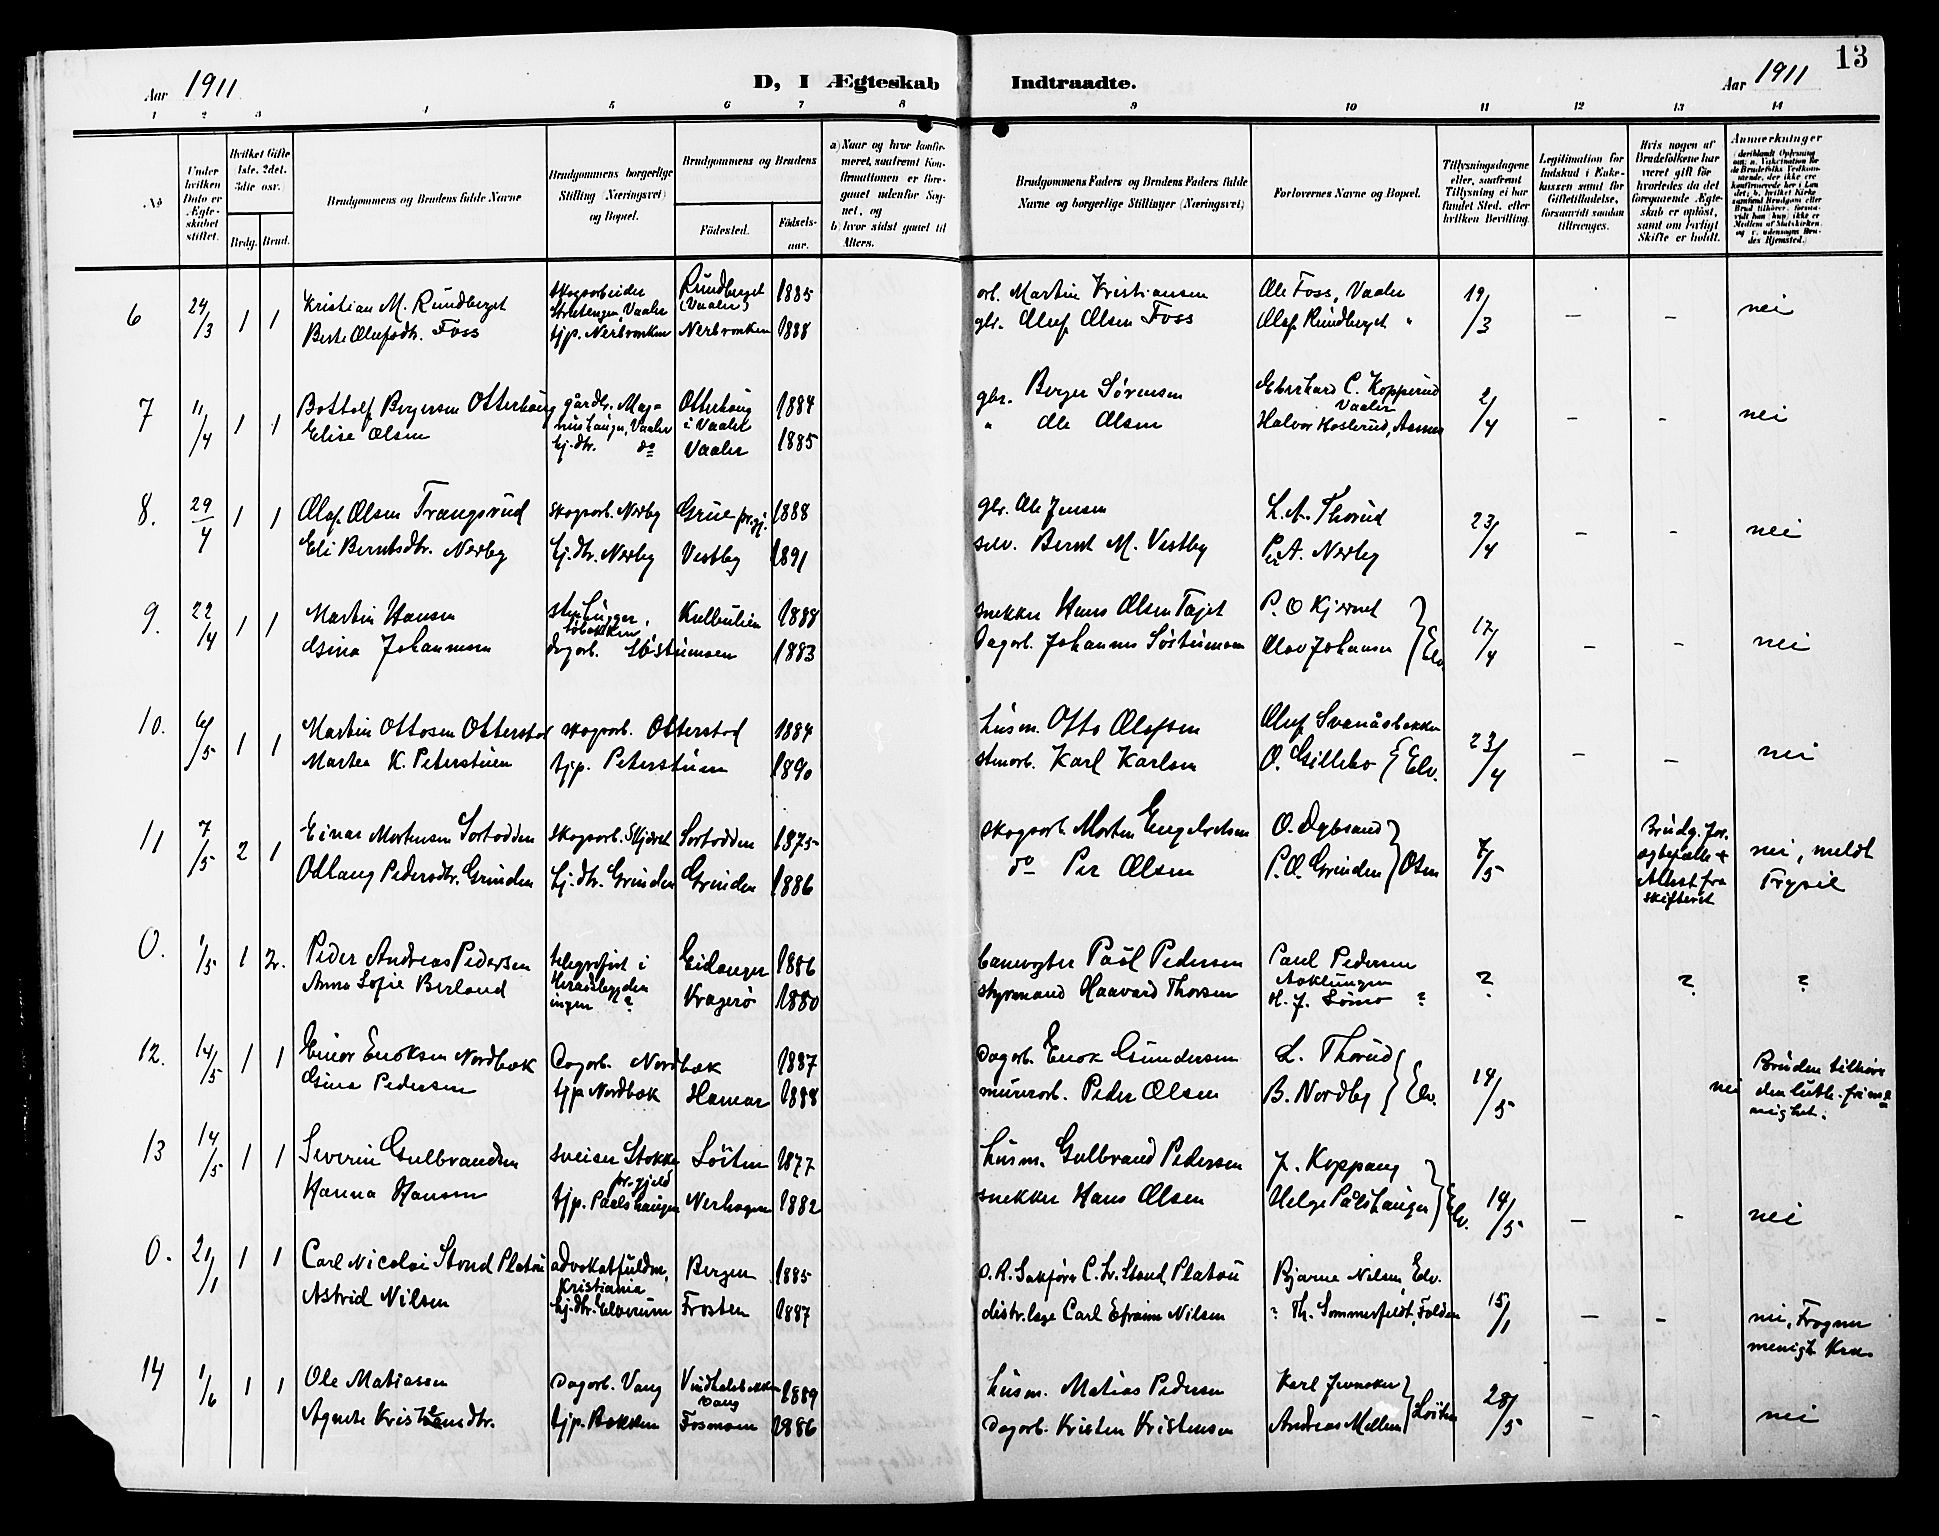 13
Aar 1911
D, I Ægteskab Indtraadte.
Aar 1911
1 2 3 4 5 6 7 8 9 10 11 12 13 14
No
Under hvilken Dato er Ægteskabet stiftet.
Hvilket Gifte 1ste. 2det. 3die osv.
Brdg. Brud.
Brudgommens og Brudens fulde Navne
Brudgommens borgerlige Stilling (Næringsvei) og Bopæl.
Brudgommens og Brudens
Fødested.
Fødselsaar.
a) Naar og hvor konfirmeret, saafremt Konfirmationen er foregaaet udenfor Sognet, og
b) hvor sidst gaaet til Alters.
Brudgommens Faders og Brudens Faders fulde Navne og borgerlige Stillinger (Næringsvei)
Forlovernes Navne og Bopæl.
Tillysningsdagene eller, saafremt Tillysning ei har fundet Sted, efter hvilken Bevilling.
Legitimation for Indskud i Enkekassen samt for Giftetilladelse, forsaavidt saadan tiltrænges.
Hvis nogen af Brudefolkene har været gift før hvorledes da det foregaaende Ægteskab er opløst, samt om lovligt Skifte er holdt.
Anmerkninger
6 24/3 1 1 Kristian M. Rundberget skogsarbeider Rundberget 1885 arb. Martin Kristiansen Ole Foss, Vaaler 19/3 – – nei
Vaaler (Vaaler)
Berte Olufsdtr. Foss tjp. Nerbronken Nerbronken 1888 gbr. Oluf Olsen Foss Olaf Rundberget "
7 11/4 1 1 Bottolf Bergersen Otterhaug gårdbr. Mag- Otterhaug 1884 gbr. Berger Sørensen Eberhard C. Kopperud 2/4 – – nei
nushaugen, Vaaler i Vaaler Vaaler
Elise Olsen hj.dtr. do Vaaler 1885 " Ole Olsen Halvor Haslerud, Aasnes
8. 29/4 1 1 Olaf Olsen Trangsrud skogsarb. Nerby Grue prgj. 1888 gbr. Ole Jensen L. A. Thorud 23/4 – – nei
Eli Berntsdtr. Nerby hj.dtr. Nerby Vestby 1891 selv. Bernt M. Vestby Per A. Nerby
9. 22/4 1 1 Martin Hansen stenhugger, Kulbulien 1888 snekker Hans Olsen Tajet P. O Kjernet 17/4 – – nei
Johannesen dagarb. Søstumoen 1883 Dagarb. Johannes Søstumoen Olav Johansen Elv.
10. 6/5 1 1 Martin Ottosen Otterstad skogsarb. Otterstad 1884 husm. Otto Olafsen Oluf Svenåsbakken 23/4 – – nei
Martea K. Peterstuen tjp. Peterstuen 1890 stenarb. Karl Karlsen O. Gillebo Elv.
11 7/5 2 1 Einar Mortensen Sortodden skogsarb. Skjæret Sortodden 1875 skogsarb. Morten Engebretsen O. Dybsand 7/5 Brudg. for. nei, meldt
Odlaug Pedersdtr. Grinden hj.dtr. Grinden Grinden 1886 do Per Olsen P. O. Grinden Osen Attest fra skifteret Trysil
0. 1/5 1 2. Peder Andreas Pedersen telegrafist i Eidanger 1886 banevogter Paul Pedersen Paul Pedersen ? ? ?
Anna Sofie Berland ingen ? Kragerø 1880 styrmand Haavard Thorsen H. J. Sømo ?
12. 14/5 1 1 Einar Enoksen Nordbæk Dagarb. Nordbæk 1887 Dagarb. Enok Gundersen L. Thorud 14/5 nei Bruden tilhører
Gina Pedersen tjp. Nordbæk Hamar 1888 murerarb. Peder Olsen B. Nordby Elv. den luth. frimenighet.
13 14/5 1 1 Severin Gulbrandsen sveiser Stokke Løiten 1877 husm. Gulbrand Pedersen J. Koppang 14/5 – – nei
pr.gjeld
Hanna Hansen tjp. Paalshaugen Nerhagen 1882 snekker Hans Olsen Helge Pålshaugen Elv.
0. 21/1 1 1 Carl Nicolai Stoud Platou advokatfuldm. Bergen 1885 O. R. Sakfører C. Lr. Stoud Platou Bjarne Nilsen Elv. 15/1 – – nei, Frogner
Kristiania
Astrid Nilsen hj.dtr. Elverum Frosten 1887 distr. læge Carl Efraim Nilsen " Th. Sommerfeldt, Folden menigh. Kra.
14 1/6 1 1 Ole Matiasen Dagarb. Vang Vang 1889 husm. Matias Pedersen Karl 28/5 – – nei
Agnete Kristensdtr. tjp. Bakken Fosmoen 1886 Dagarb. Kristen Kristensen Andreas Mellem Løiten